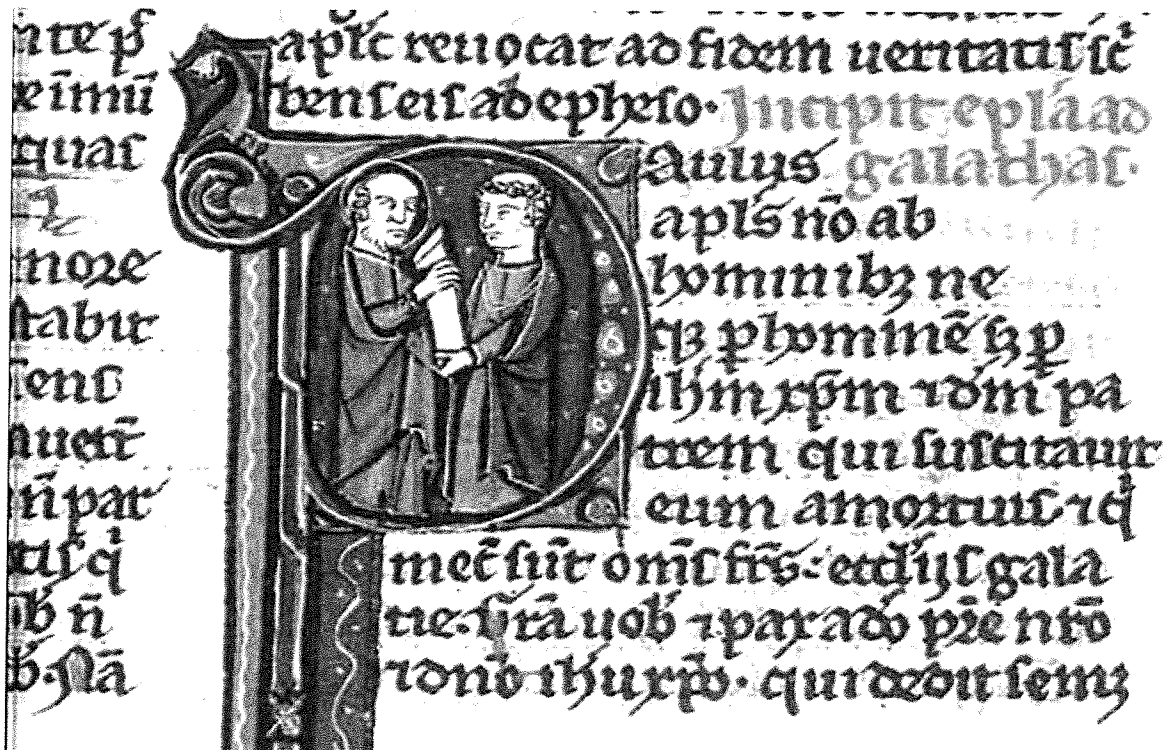 nte pſ
e īmū
quas
nore
tabit
ſens
auet̄
n̄ pat
tiſ qⁱ
b n̄
b. Nā
aplͨ reuocat ad fidem ueritatiſ ſcⁱ
benſ eiſ ab epheſo. Incipit epl̄a ad
Pauluſ galathaſ.
apl̄s nō ab
hominibꝫ ne
qꝫ ꝑ hominē ſꝫ ꝑ
ih̄m xp̄m ⁊ dm̄ pa
trem qui ſuſcitauit
eum a mortuiſ. ⁊ qⁱ
mec̄ ſūt om̄ſ fr̄s: eccl̄ijſ gala
tie. Gr̄a uob̄ ⁊ pax a do̅ pr̄e nr̄o
⁊ dnō ih̄u xp̄o. qui dedit ſemꝫ